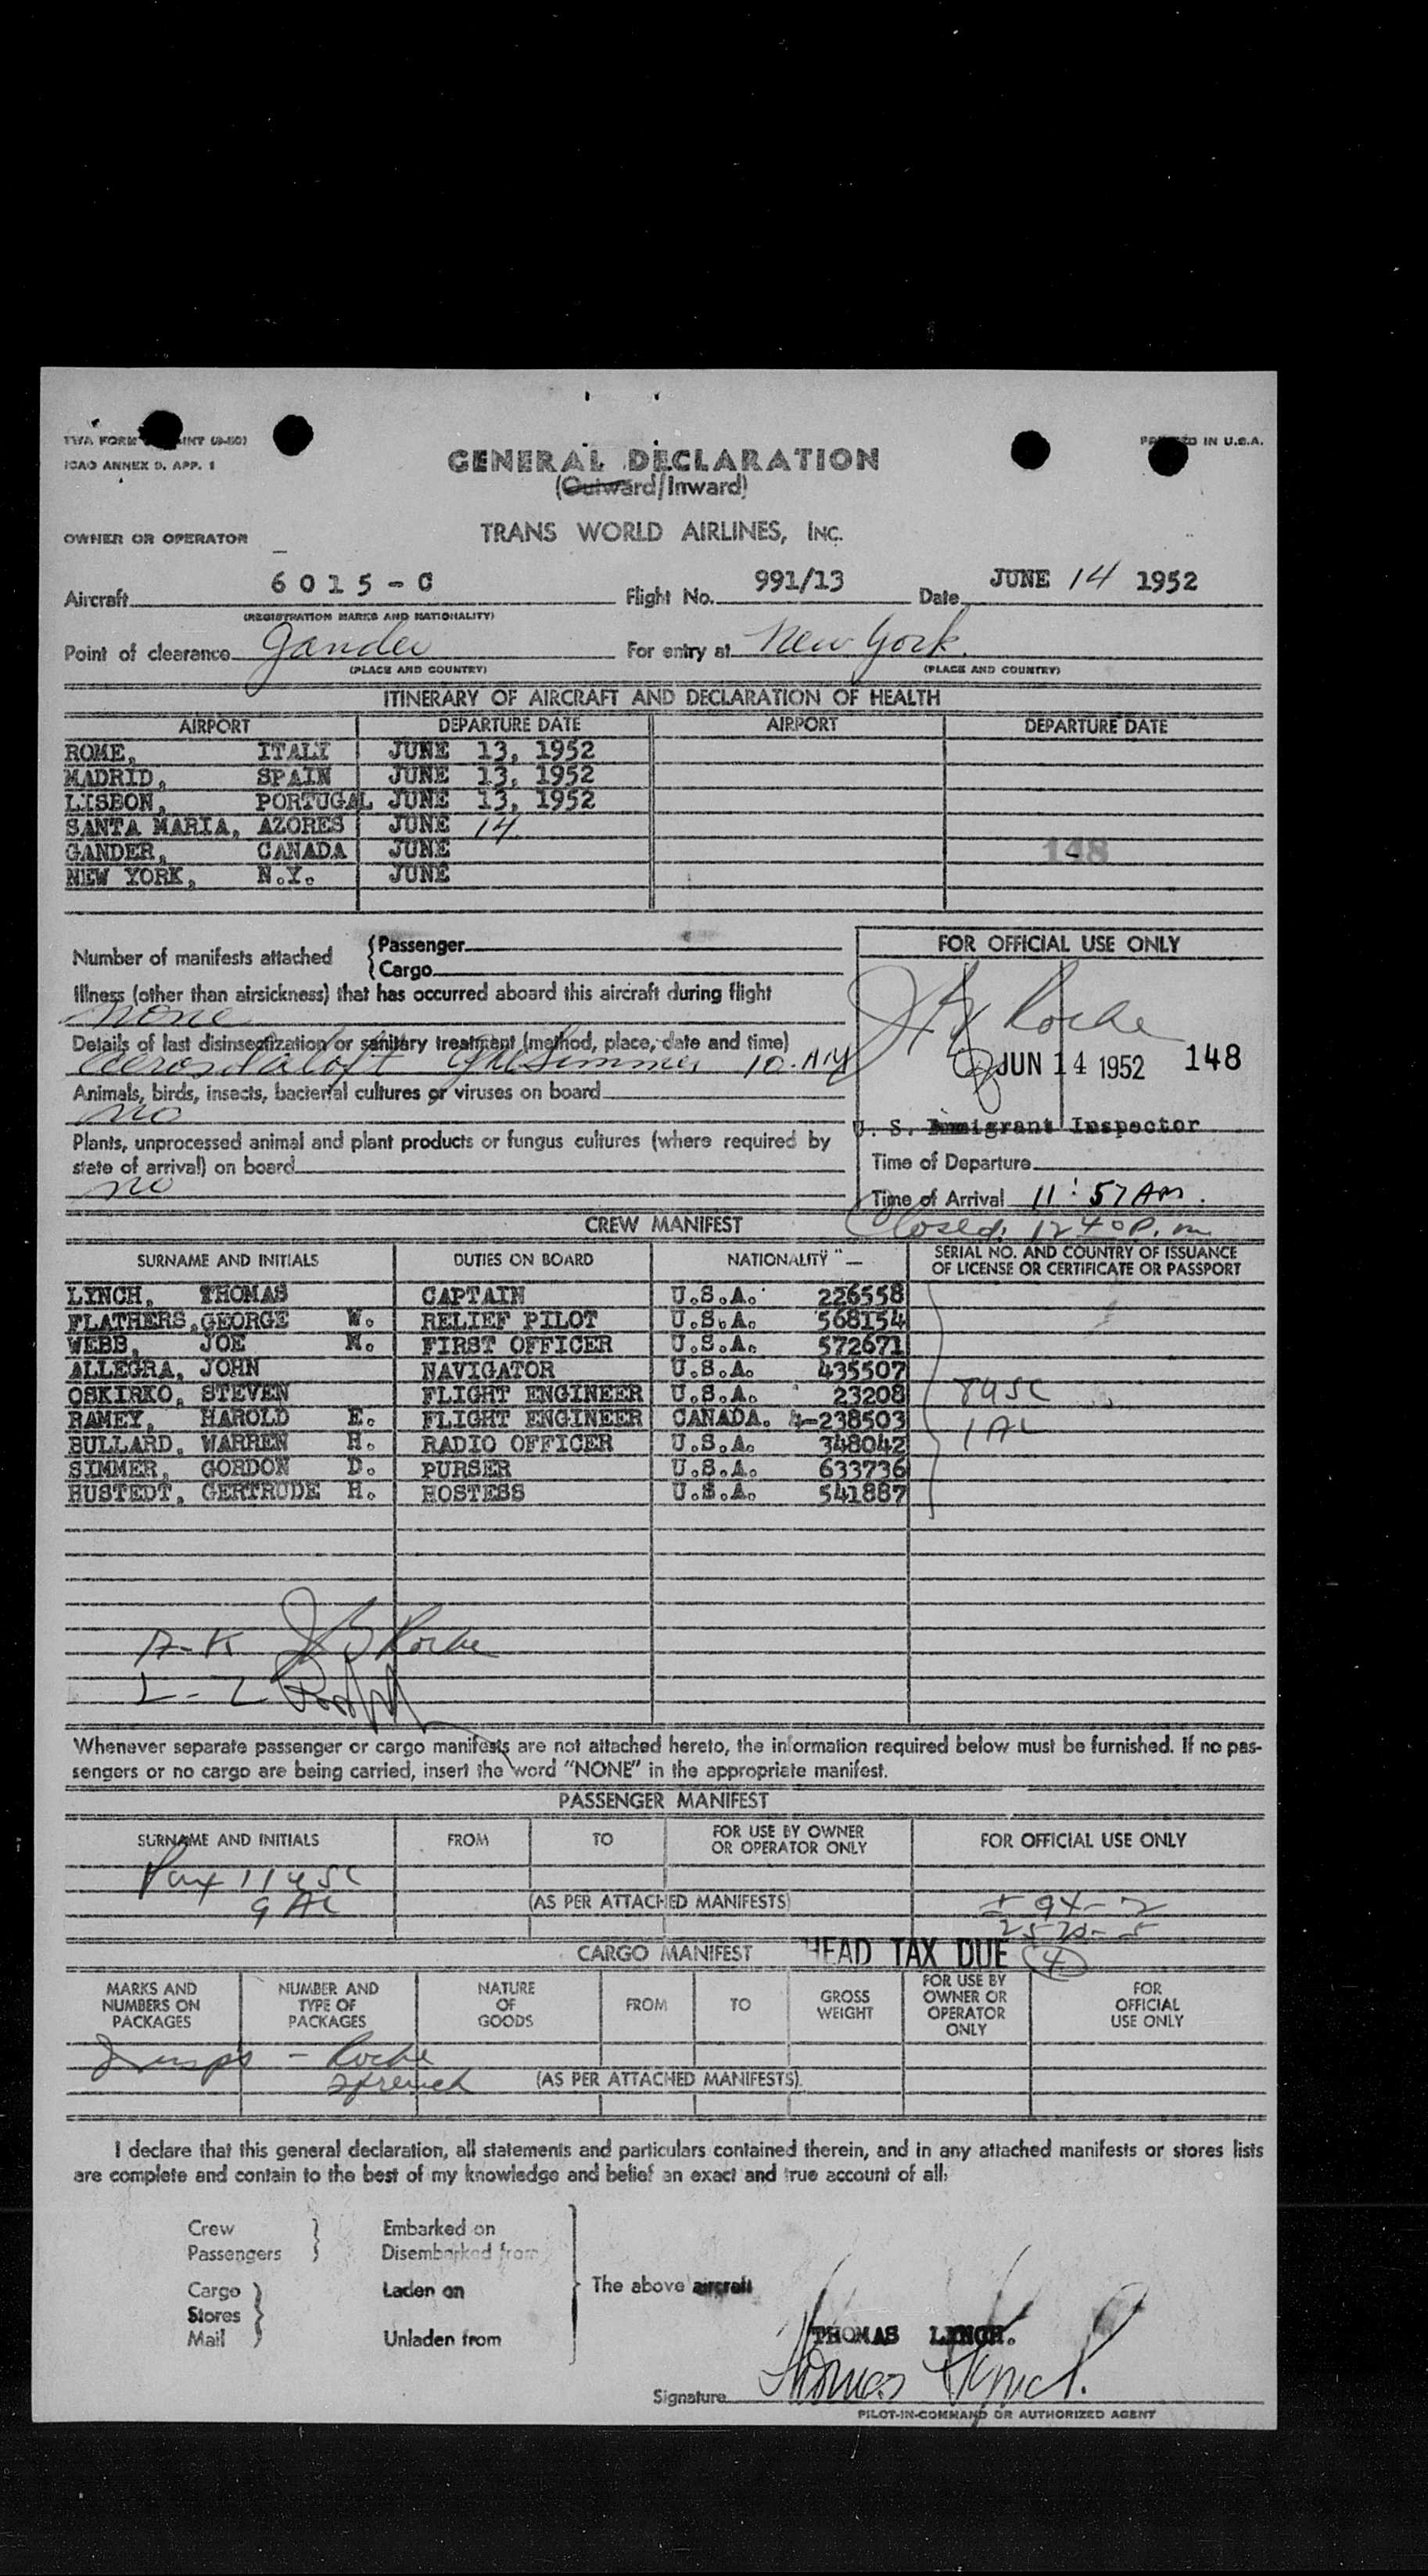 TWA FORM INT (3-50)
PRINTED IN U.S.A.
ICAO ANNEX 9. APP. 1
GENERAL DECLARATION
(Outward/Inward)
OWNER OR OPERATOR
TRANS WORLD AIRLINES, INC.
Aircraft 6015-C Flight No. 991/13 Date JUNE 14 1952
(REGISTRATION MARKS AND NATIONALITY)
Point of clearance Gander For entry at New York.
(PLACE AND COUNTRY) (PLACE AND COUNTRY)
ITINERARY OF AIRCRAFT AND DECLARATION OF HEALTH
AIRPORT DEPARTURE DATE AIRPORT DEPARTURE DATE
ROME, ITALY JUNE 13, 1952
MADRID, SPAIN JUNE 13, 1952
LISBON, PORTUGAL JUNE 13, 1952
SANTA MARIA, AZORES JUNE 14
GANDER, CANADA JUNE 148
NEW YORK, N.Y. JUNE
Number of manifests attached {Passenger
{Cargo
FOR OFFICIAL USE ONLY
Illness (other than airsickness) that has occurred aboard this aircraft during flight
None
Roche
Details of last disinsectization or sanitary treatment (method, place, date and time)
Simmer 10
JUN 14 1952 148
Animals, birds, insects, bacterial cultures or viruses on board
no
U. S. Immigrant Inspector
Plants, unprocessed animal and plant products or fungus cultures (where required by
state of arrival) on board
no
Time of Departure
Time of Arrival 11:57 AM.
Closed 1240 P.m
CREW MANIFEST
SURNAME AND INITIALS DUTIES ON BOARD NATIONALITY SERIAL NO. AND COUNTRY OF ISSUANCE
OF LICENSE OR CERTIFICATE OR PASSPORT
LYNCH, THOMAS CAPTAIN U.S.A. 226558
FLATHERS, GEORGE W. RELIEF PILOT U.S.A. 568154
WEBB, JOE N. FIRST OFFICER U.S.A. 572671
ALLEGRA, JOHN NAVIGATOR U.S.A. 435507
OSKIRKO, STEVEN FLIGHT ENGINEER U.S.A. 23208 8 USC
RAMEY, HAROLD E. FLIGHT ENGINEER CANADA. 4-238503 1 AL
BULLARD, WARREN H. RADIO OFFICER U.S.A. 348042
SIMMER, GORDON D. PURSER U.S.A. 633736
HUSTEDT, GERTRUDE H. HOSTESS U.S.A. 541887
A-K Roche
L-Z
Whenever separate passenger or cargo manifests are not attached hereto, the information required below must be furnished. If no pas-
sengers or no cargo are being carried, insert the word "NONE" in the appropriate manifest.
PASSENGER MANIFEST
SURNAME AND INITIALS FROM TO FOR USE BY OWNER
OR OPERATOR ONLY FOR OFFICIAL USE ONLY
Pax 11 USC
9 AL (AS PER ATTACHED MANIFESTS)
CARGO MANIFEST HEAD TAX DUE (4)
MARKS AND
NUMBERS ON
PACKAGES NUMBER AND
TYPE OF
PACKAGES NATURE
OF
GOODS FROM TO GROSS
WEIGHT FOR USE BY
OWNER OR
OPERATOR
ONLY FOR
OFFICIAL
USE ONLY
Insps - Roche
(AS PER ATTACHED MANIFESTS)
I declare that this general declaration, all statements and particulars contained therein, and in any attached manifests or stores lists
are complete and contain to the best of my knowledge and belief an exact and true account of all:
Crew Embarked on
Passengers Disembarked from
Cargo Laden on The above aircraft
Stores
Mail Unladen from
THOMAS LYNCH.
Signature Thomas Lynch.
PILOT-IN-COMMAND OR AUTHORIZED AGENT